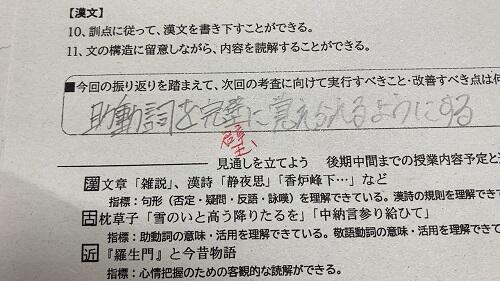 【漢文】
10、訓点に従って、漢文を書き下すことができる。
11、文の構造に留意しながら、内容を読解することができる。
■今回の振り返りを踏まえて、次回の考査に向けて実行すべきこと・改善すべき点は何
助動詞を完壁に覚えられるようにする
璧
見通しを立てよう 後期中間までの授業内容予定と
漢 文章「雑説」、漢詩「静夜思」「香炉峰下…」など
指標：句形（否定・疑問・反語・詠嘆）を理解できている。漢詩の規則を理解でき
古 枕草子「雪のいと高う降りたるを」「中納言参り給ひて」
指標：助動詞の意味・活用を理解できている。敬語動詞の意味・活用を理解
近 『羅生門』と今昔物語
指標：心情把握のための客観的な読解ができる。